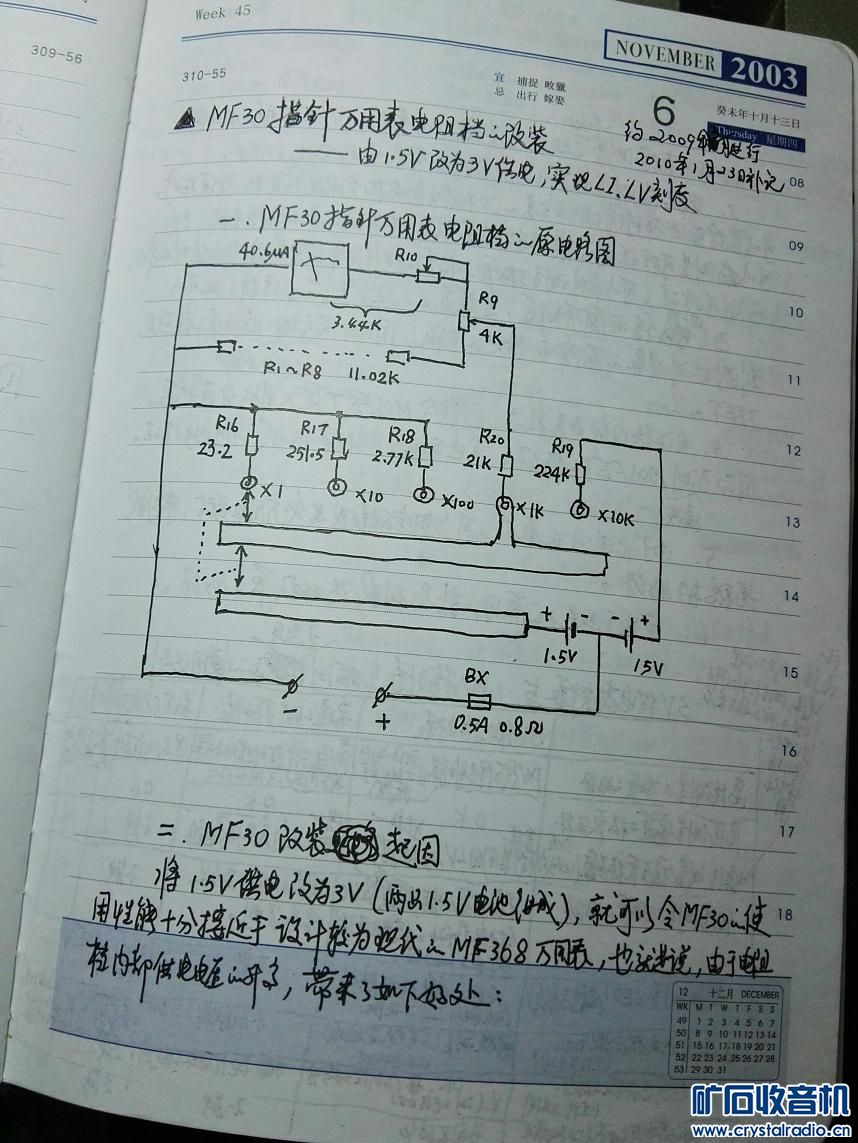 Week 45
309-56
NOVEMBER 2003
310-55
宜 捕捉 畋獵
忌 出行 嫁娶
6
癸未年十月十三日
Thursday 星期四
▲ MF30 指针万用表电阻档的改装
——由1.5V改为3V供电,实现LI、LV刻度
约2009年 进行
2010年1月23日补记
08
一.MF30指针万用表电阻档的原电路图
09
40.6uA
R10
R9
10
3.44K
4K
R1~R8 11.02K
11
R16
23.2
R17
251.5
R18
2.77K
R20
21K
R19
224K
12
X1
X10
X100
X1K
X10K
13
14
+ - - +
1.5V
15V
15
BX
- +
0.5A 0.8Ω
16
17
二.MF30改装 起因
将1.5V供电改为3V(两出1.5V电池组成),就可以令MF30的使
18
用性能十分接近于设计较为现代的MF368万用表,也就是说,由于电阻
档内部供电电压的升高,带来了如下好处:
12 十二月 DECEMBER
WK M T W T F S S
49 1 2 3 4 5 6 7
50 8 9 10 11 12 13 14
51 15 16 17 18 19 20 21
52 22 23 24 25 26 27 28
53 29 30 31
矿石收音机
www.crystalradio.cn